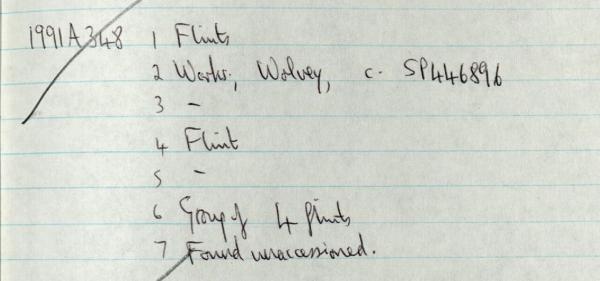 1991A348 1 Flints
2 Warks, Wolvey, c. SP446896
3 -
4 Flint
5 -
6 Group of 4 flints
7 Found unaccessioned.